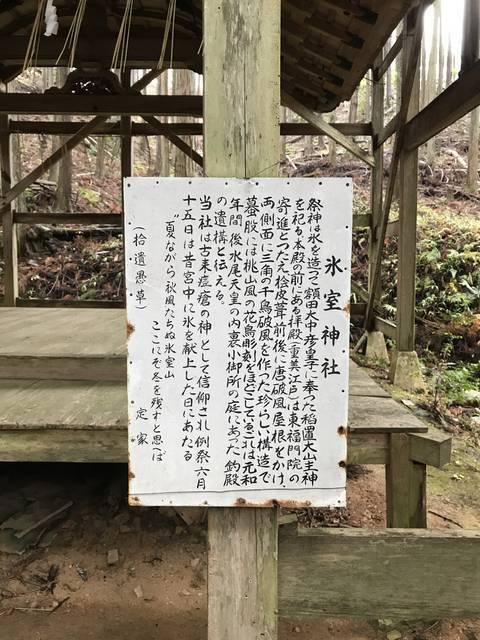 氷室神社
祭神は氷を造って額田大中彦皇子に奉った稲置大山主神
を祀る。本殿の前にある拝殿(重美・江戸)は東福門院の
寄進とつたえ桧皮葺前後に唐破風屋根をかけ、
両側面に三角の千鳥破風を作った珍らしい構造で
蟇股には桃山風の花鳥彫刻をほどこしているこれは元和
年間後水尾天皇の内裏小御所の庭にあった釣殿
の遺構と伝える。
当社は古来痘瘡の神として信仰され例祭六月
十五日は昔宮中に氷を献上した日にあたる
"夏ながら秋風たちぬ氷室山
ここにぞ冬を残すと思へば
定家
(拾遺愚草)